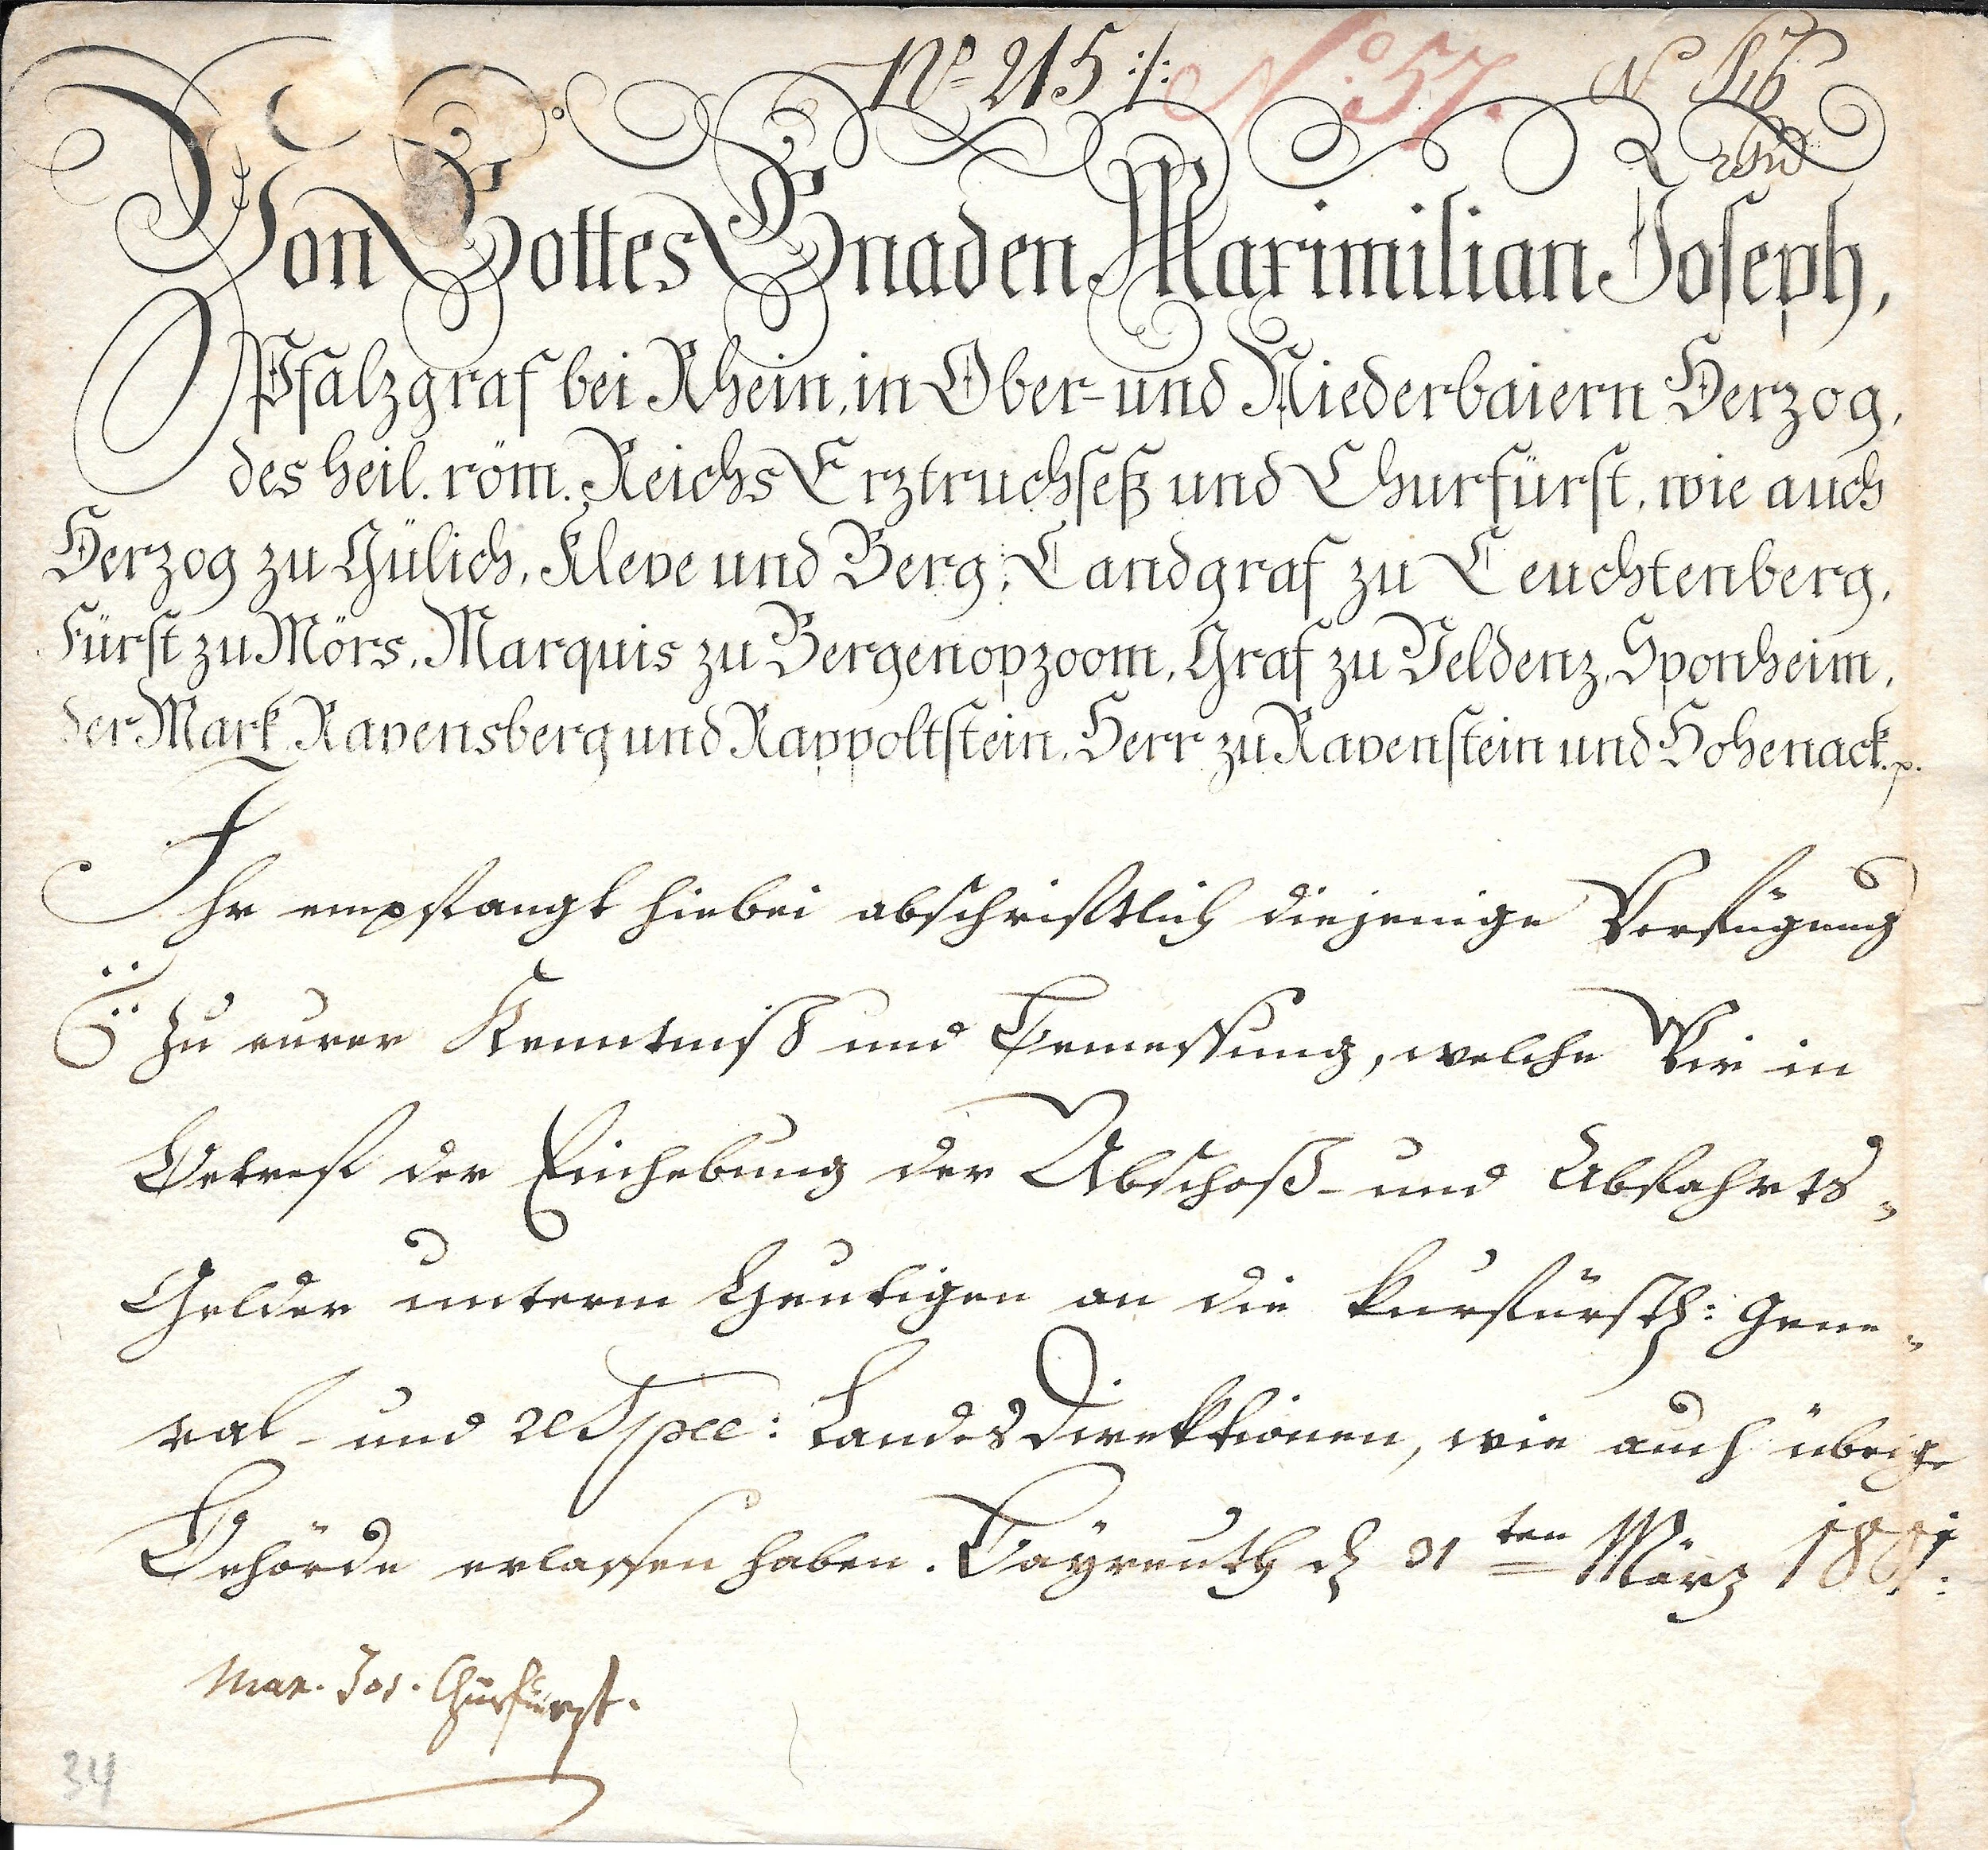 Nº 215 :/: Nº 57. N 46
Von Gottes Gnaden Maximilian Joseph,
Pfalzgraf bei Rhein, in Ober- und Niederbaiern Herzog,
des heil. röm. Reichs Erztruchseß und Churfürst, wie auch
Herzog zu Gülich, Kleve und Berg, Landgraf zu Leuchtenberg,
Fürst zu Mörs, Marquis zu Bergenopzoom, Graf zu Veldenz, Sponheim,
der Mark, Ravensberg und Rappoltstein, Herr zu Ravenstein und Hohenack. p.
Ihr empfangt hiebei abschriftlich diejenige Verfügung
zu eurer Kenntniß und Bemessung, welche Wir in
Betreff der Einhebung der Abschoß- und Abfahrts-
Gelder unterm Heutigen an die kurfürstl: Gene-
ral- und respec: Landes Direktionen, wie auch übrige
Behörde erlassen haben. Bayreuth d 31ten März 1801.
Max. Jos. Churfürst.
34